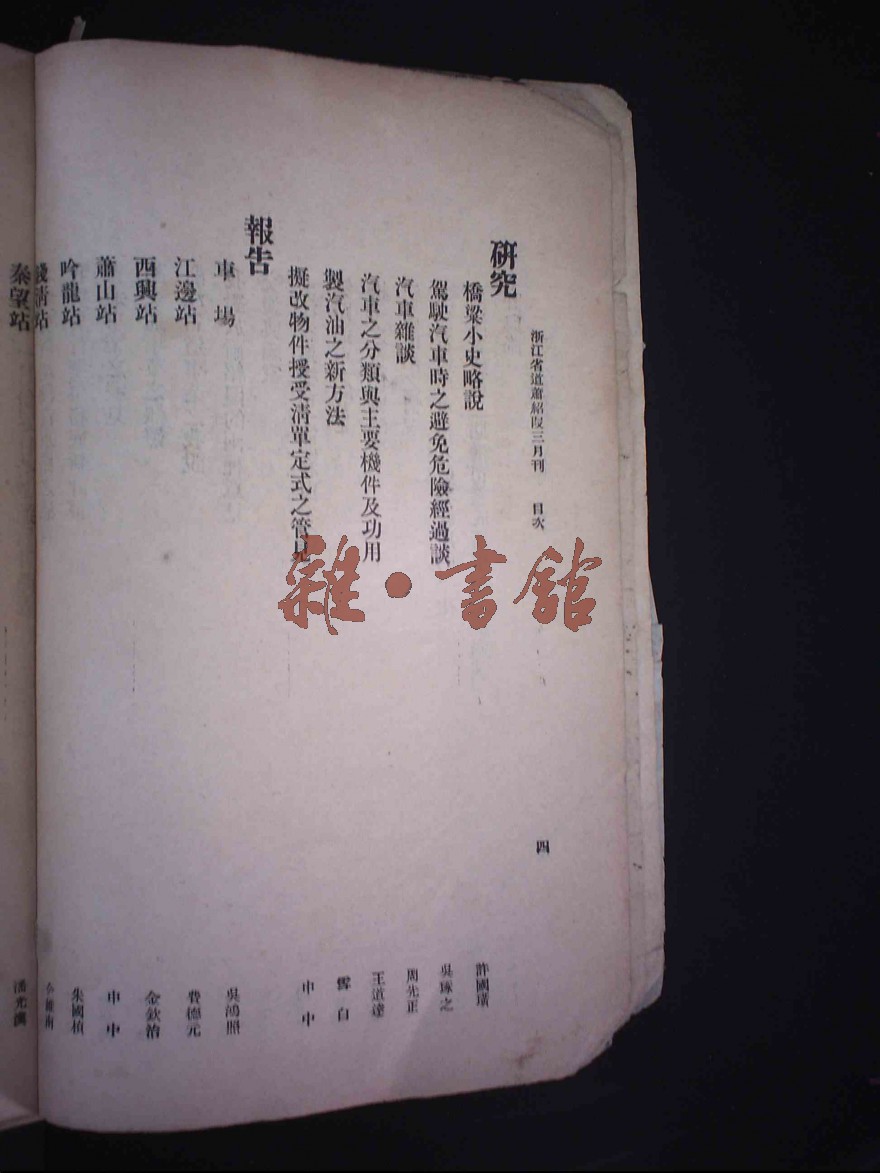 浙江省道蕭紹段三月刊 目次 四
研究
橋梁小史略說 許國璜
駕駛汽車時之避免危險經過談 吳琢之
汽車雜談 周先正
汽車之分類與主要機件及功用 王道達
製汽油之新方法 雪白
擬改物件授受清單定式之管見 申中
報告
車場 吳鴻照
江邊站 費德元
西興站 金欽治
蕭山站 申中
吟龍站 朱國楨
錢清站
秦望站 潘光漢
雜·書館